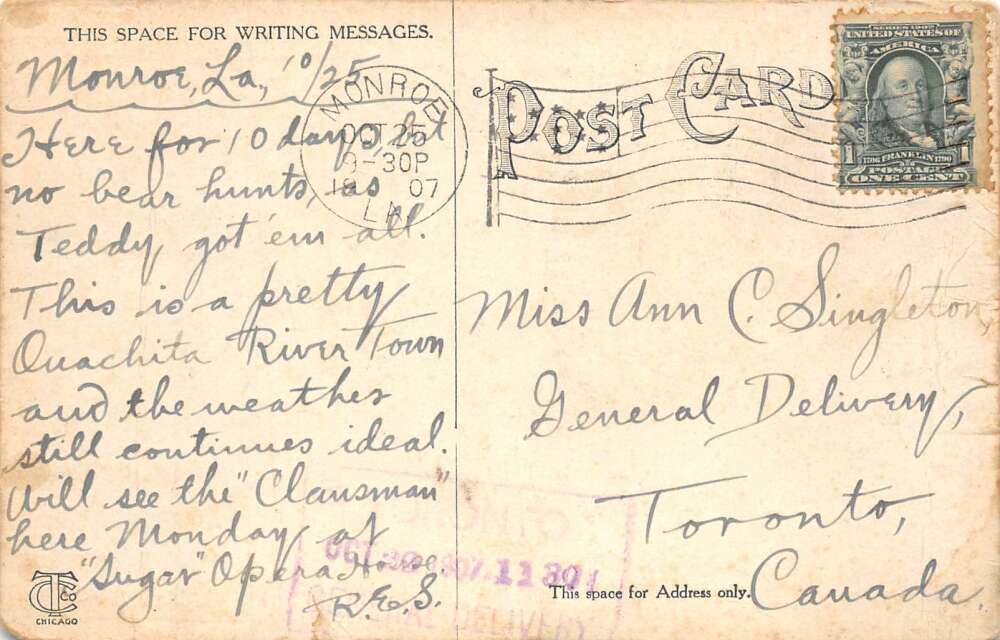 THIS SPACE FOR WRITING MESSAGES.
Monroe, La., 10/25
Here for 10 days but
no bear hunts, as
Teddy, got 'em all.
This is a pretty
Ouachita River Town
and the weather
still continues ideal.
Will see the "Clansman"
here Monday at
"Sugar" Opera House
R.E.S.
TC CO
CHICAGO
MONROE
OCT 25
9-30P
07
LA.
POST CARD
SERIES 1902
UNITED STATES OF
AMERICA
1 1790 FRANKLIN 1790 1
POSTAGE
ONE CENT
Miss Ann C. Singleton,
General Delivery,
Toronto,
Canada.
This space for Address only.
OCT 30 1907 11 30
GENERAL DELIVERY